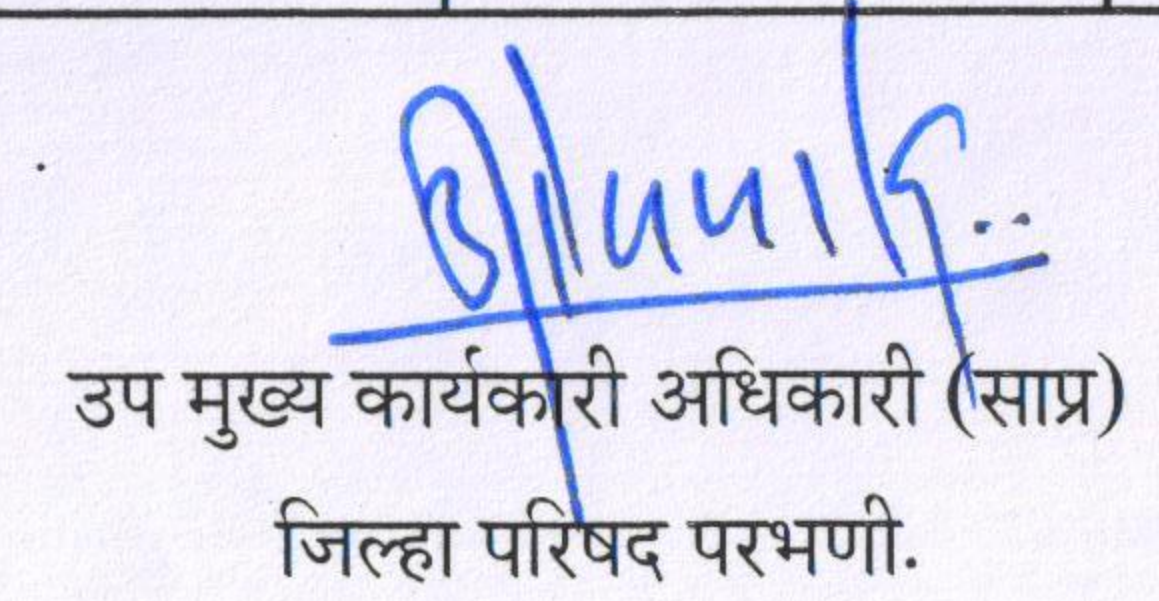 उप मुख्य कार्यकारी अधिकारी (साप्र)
जिल्हा परिषद परभणी.